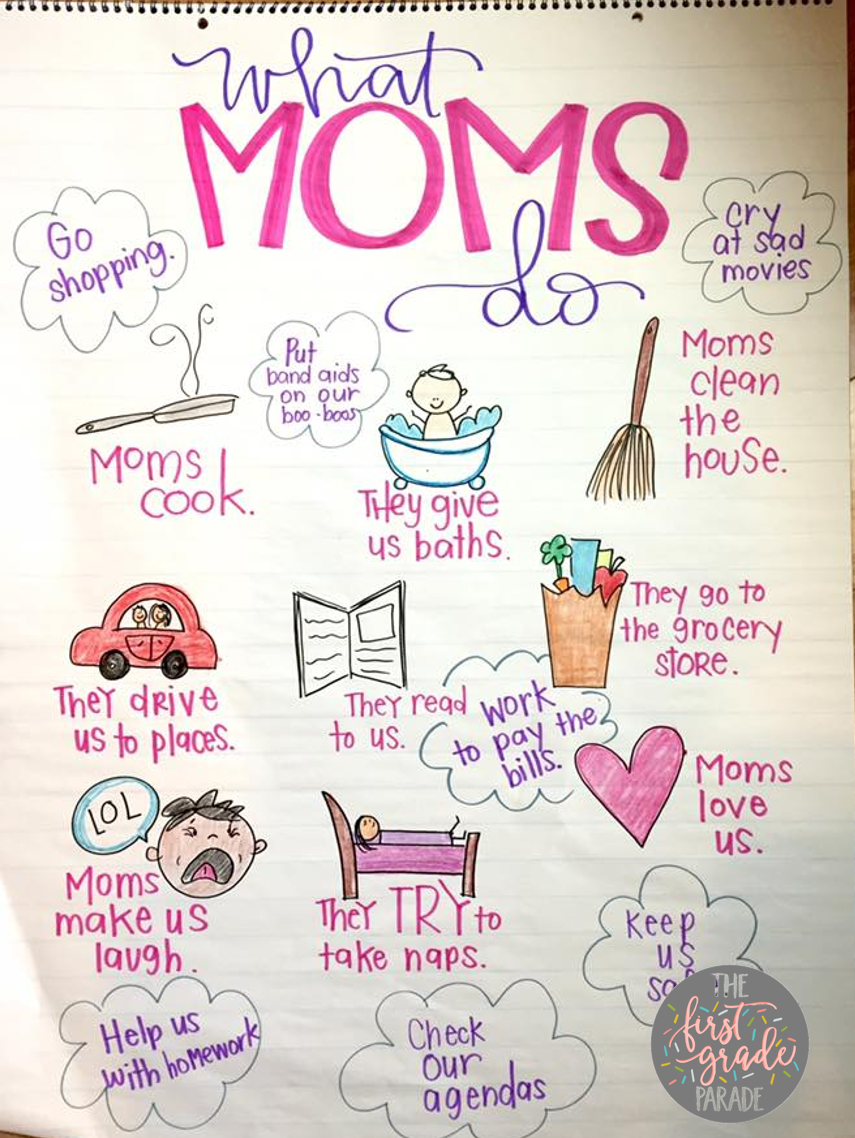 what
MOMS
do
Go
shopping.
cry
at sad
movies
Put
band aids
on our
boo-boos
Moms
clean
the
house.
Moms
cook.
They give
us baths.
They go to
the grocery
store.
They drive
us to places.
They read
to us.
work
to pay the
bills.
Moms
love
us.
LOL
Moms
make us
laugh.
They TRY to
take naps.
Keep
us
Help us
with homework
Check
our
agendas
THE
first
grade
PARADE